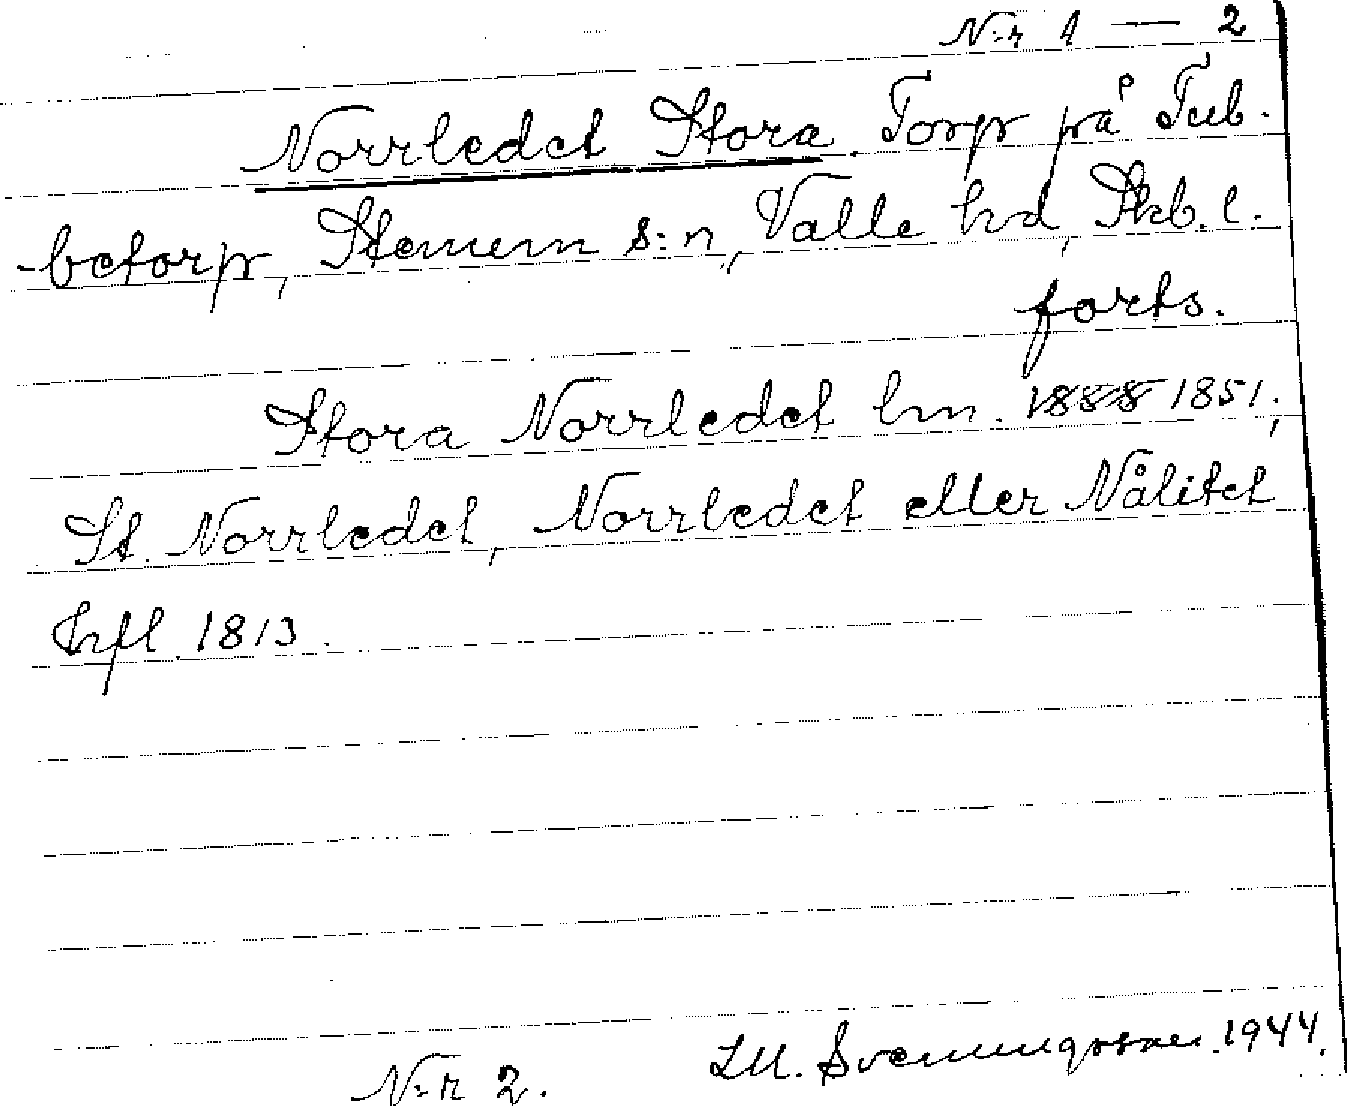 N:r 1 — 2
Norrledet Stora. Torp på Tub-
betorp, Stenum s:n, Valle hd, Skb. l.
forts.
Stora Norrledet hm. 1888 1851;
St. Norrledet, Norrledet eller Nålitet
hfl 1813.
N:r 2. LM. Svenungsson 1944.